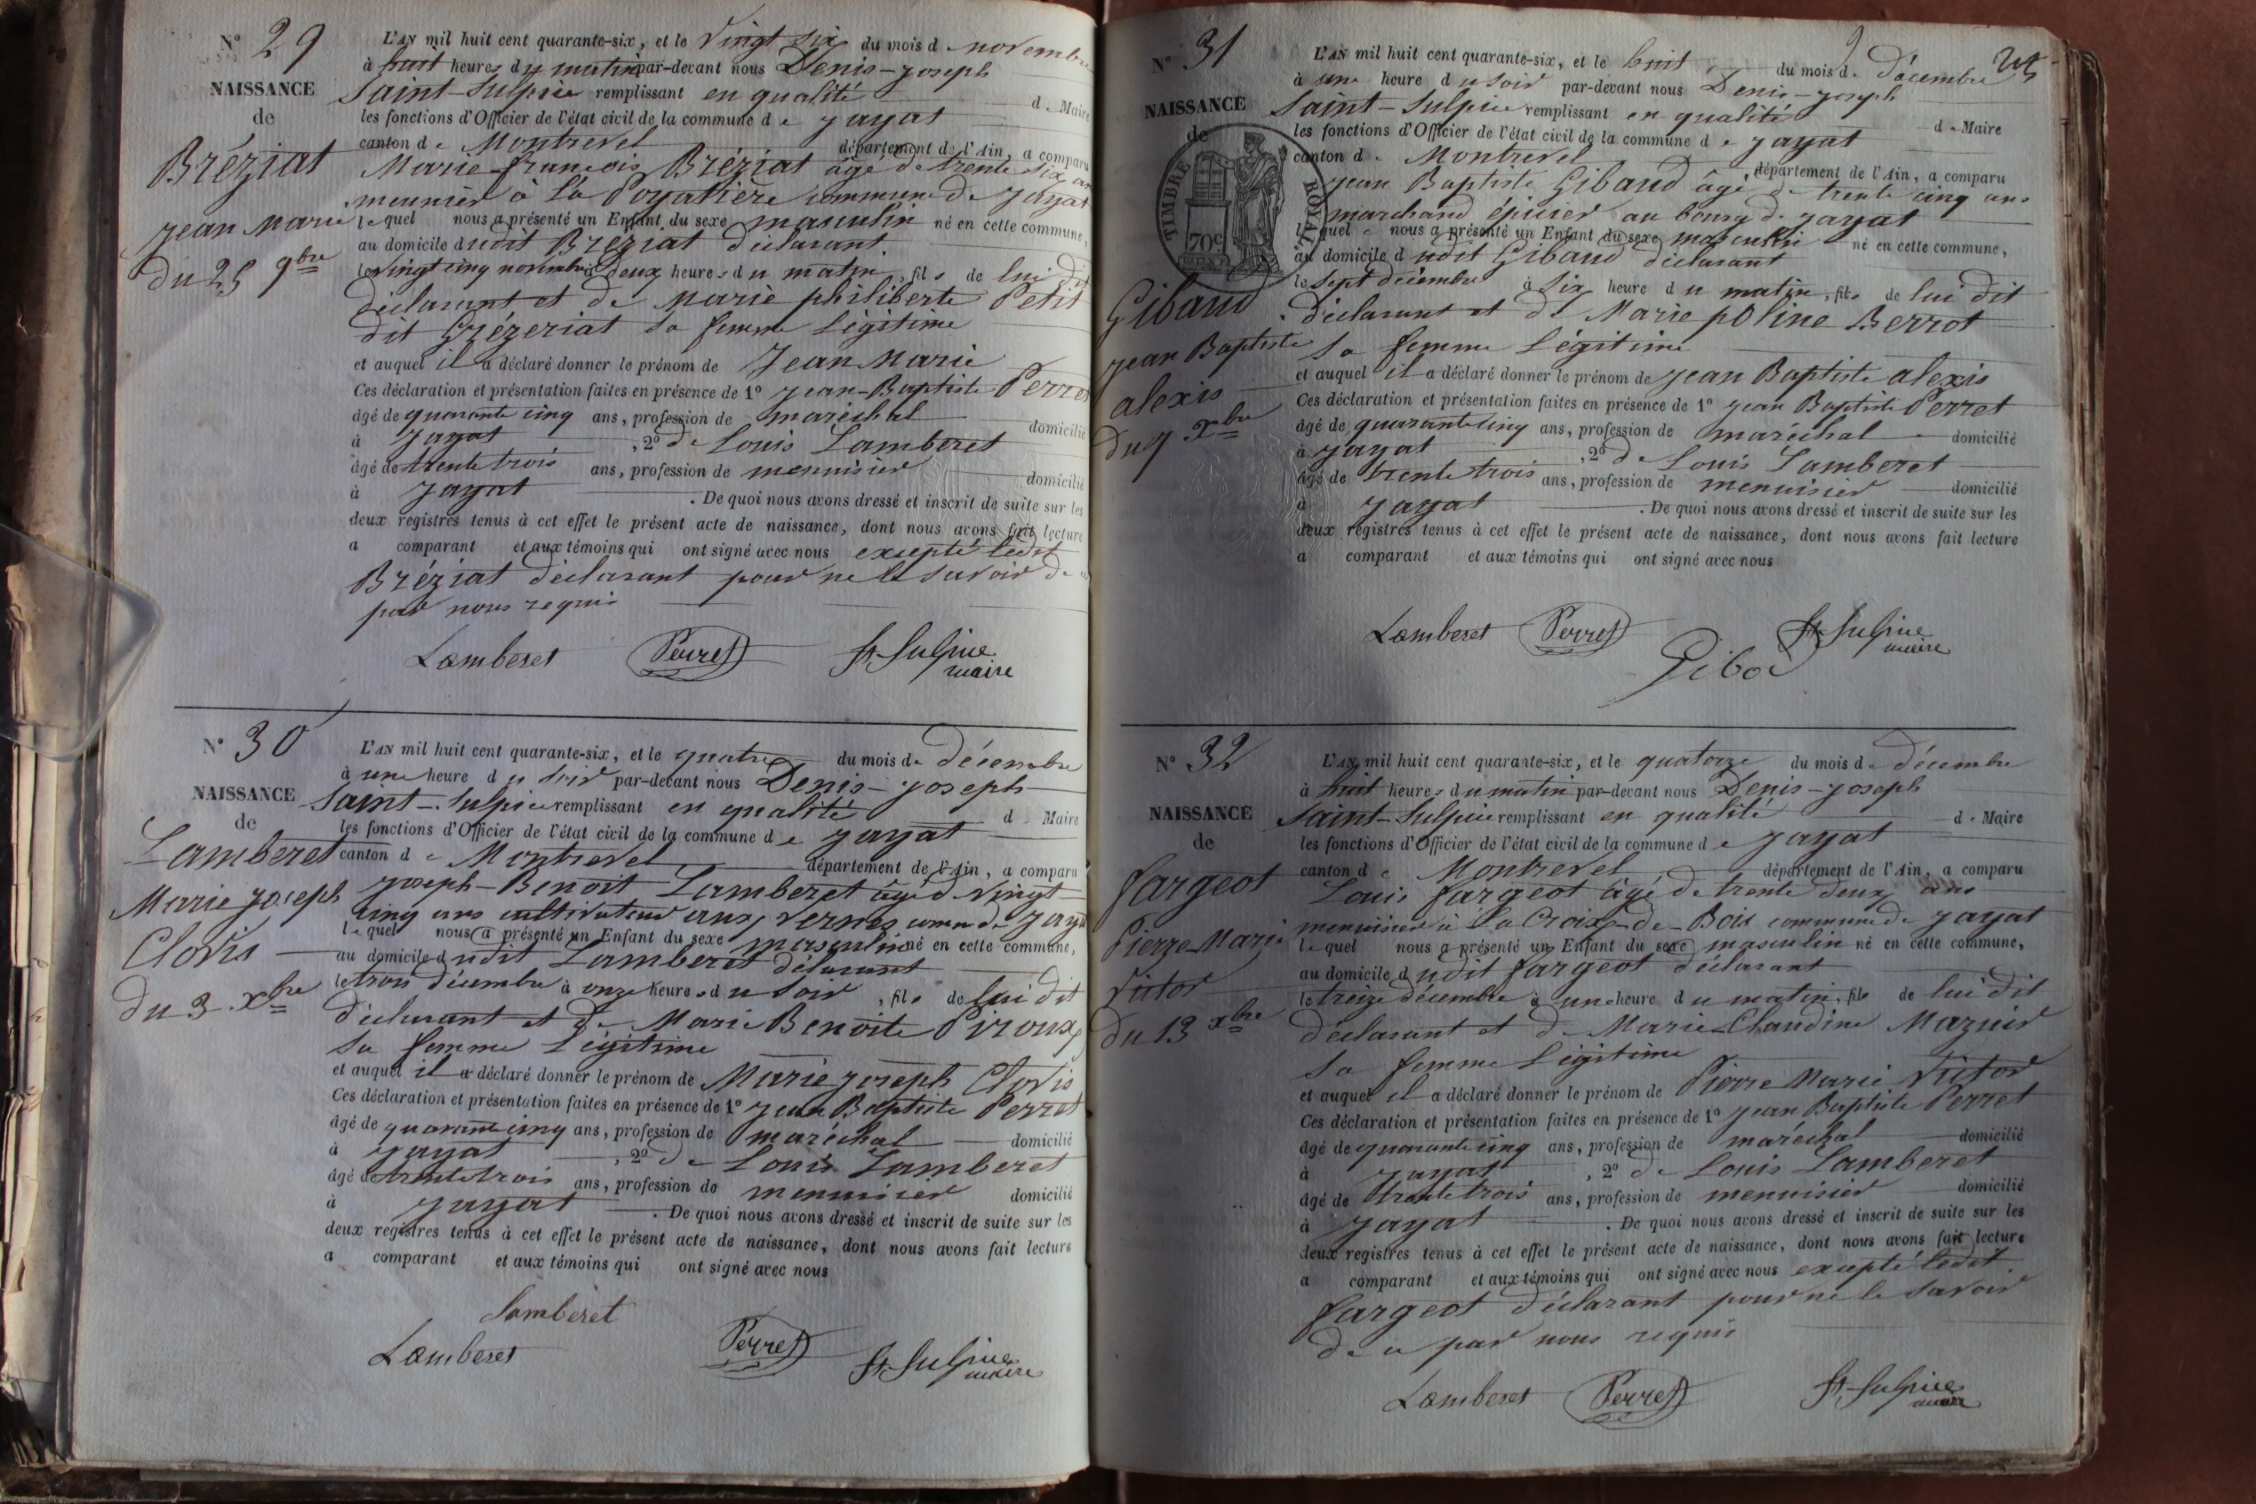 N° 29
NAISSANCE
de
Bréziat
Jean Marie
du 25 9bre
L'AN mil huit cent quarante-six, et le vingt six du mois d novembre
à huit heures du matin par-devant nous Denis-Joseph
Saint-Sulpice remplissant en qualité de Maire
les fonctions d'Officier de l'état civil de la commune de Jayat
canton de Montrevel département de l'Ain, a comparu
Marie françois Bréziat âgé de trente six ans
meunier à la Poyatière commune de Jayat
lequel nous a présenté un Enfant du sexe masculin né en cette commune,
au domicile dudit Bréziat déclarant
le vingt cinq novembre à deux heures du matin, fils de lui dit
déclarant et de Marie philiberte Petit
dit Grézeriat sa femme légitime
et auquel il a déclaré donner le prénom de Jean Marie
Ces déclaration et présentation faites en présence de 1° Jean-Baptiste Perret
âgé de quarante cinq ans, profession de maréchal domicilié
à Jayat, 2° de Louis Lamberet
âgé de trente trois ans, profession de menuisier domicilié
à Jayat. De quoi nous avons dressé et inscrit de suite sur les
deux registres tenus à cet effet le présent acte de naissance, dont nous avons fait lecture
a comparant et aux témoins qui ont signé avec nous excepté ledit
Bréziat déclarant pour ne le savoir de ce
par nous requis
Lamberet Perret St Sulpice
maire
N° 30
NAISSANCE
de
Lamberet
Marie Joseph
Clovis
du 3 Xbre
L'AN mil huit cent quarante-six, et le quatre du mois de décembre
à une heure du soir par-devant nous Denis-Joseph
Saint-Sulpice remplissant en qualité d Maire
les fonctions d'Officier de l'état civil de la commune de Jayat
canton de Montrevel département de l'Ain, a comparu
Joseph-Benoit Lamberet âgé d vingt
cinq ans cultivateur aux vernes comm de Jayat
lequel nous a présenté un Enfant du sexe masculin né en cette commune,
au domicile dudit Lamberet déclarant
le trois décembre à onze heures du soir, fils de lui dit
déclarant et de Marie Benoite Piroux
sa femme légitime
et auquel il a déclaré donner le prénom de Marie Joseph Clovis
Ces déclaration et présentation faites en présence de 1° Jean Baptiste Perret
âgé de quarante cinq ans, profession de maréchal domicilié
à Jayat, 2° de Louis Lamberet
âgé de trente trois ans, profession de menuisier domicilié
à Jayat. De quoi nous avons dressé et inscrit de suite sur les
deux registres tenus à cet effet le présent acte de naissance, dont nous avons fait lecture
a comparant et aux témoins qui ont signé avec nous
Lamberet
Lamberet Perret St Sulpice
maire
N° 31
NAISSANCE
de
TIMBRE ROYAL
70c
Gibaud
Jean Baptiste
alexis
du 7 Xbre
L'AN mil huit cent quarante-six, et le huit du mois de décembre
à une heure du soir par-devant nous Denis-Joseph
Saint-Sulpice remplissant en qualité de Maire
les fonctions d'Officier de l'état civil de la commune de Jayat
canton de Montrevel département de l'Ain, a comparu
Jean Baptiste Gibaud âgé de trente cinq ans
marchand épicier au bourg de Jayat
lequel nous a présenté un Enfant du sexe masculin né en cette commune,
au domicile dudit Gibaud déclarant
le sept décembre à six heure du matin, fils de lui dit
déclarant et de Marie poline Berrot
sa femme légitime
et auquel il a déclaré donner le prénom de Jean Baptiste alexis
Ces déclaration et présentation faites en présence de 1° Jean Baptiste Perret
âgé de quarante cinq ans, profession de maréchal domicilié
à Jayat, 2° de Louis Lamberet
âgé de trente trois ans, profession de menuisier domicilié
à Jayat. De quoi nous avons dressé et inscrit de suite sur les
deux registres tenus à cet effet le présent acte de naissance, dont nous avons fait lecture
a comparant et aux témoins qui ont signé avec nous
Lamberet Perret St Sulpice
maire
Gibod
N° 32
NAISSANCE
de
fargeot
Pierre Marie
Victor
du 13 Xbre
L'AN mil huit cent quarante-six, et le quatorze du mois de décembre
à huit heures du matin par-devant nous Denis-Joseph
Saint-Sulpice remplissant en qualité de Maire
les fonctions d'Officier de l'état civil de la commune de Jayat
canton de Montrevel département de l'Ain, a comparu
Louis fargeot âgé de trente deux ans
menuisier à La Croix-de-Bois commune de Jayat
lequel nous a présenté un Enfant du sexe masculin né en cette commune,
au domicile dudit fargeot déclarant
le treize décembre à une heure du matin, fils de lui dit
déclarant et de Marie-Claudine Mazuir
sa femme légitime
et auquel il a déclaré donner le prénom de Pierre Marie Victor
Ces déclaration et présentation faites en présence de 1° Jean Baptiste Perret
âgé de quarante cinq ans, profession de maréchal domicilié
à Jayat, 2° de Louis Lamberet
âgé de trente trois ans, profession de menuisier domicilié
à Jayat. De quoi nous avons dressé et inscrit de suite sur les
deux registres tenus à cet effet le présent acte de naissance, dont nous avons fait lecture
a comparant et aux témoins qui ont signé avec nous excepté ledit
fargeot déclarant pour ne le savoir
de ce par nous requis
Lamberet Perret St Sulpice
maire